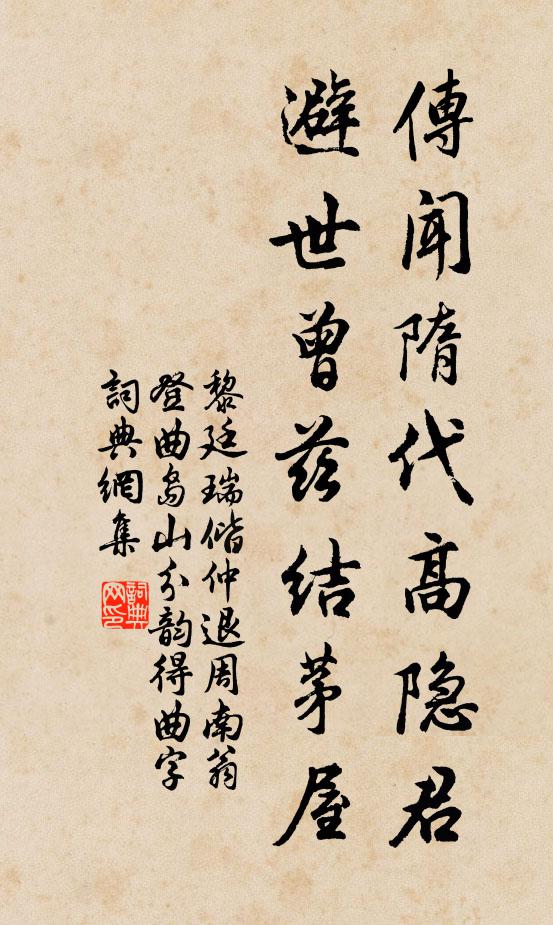 傳聞隋代高隐君
避世曾茲結茅屋
黎廷瑞偕仲退周南翁
登曲岛山分韵得曲字
詞典網集
詞典网印